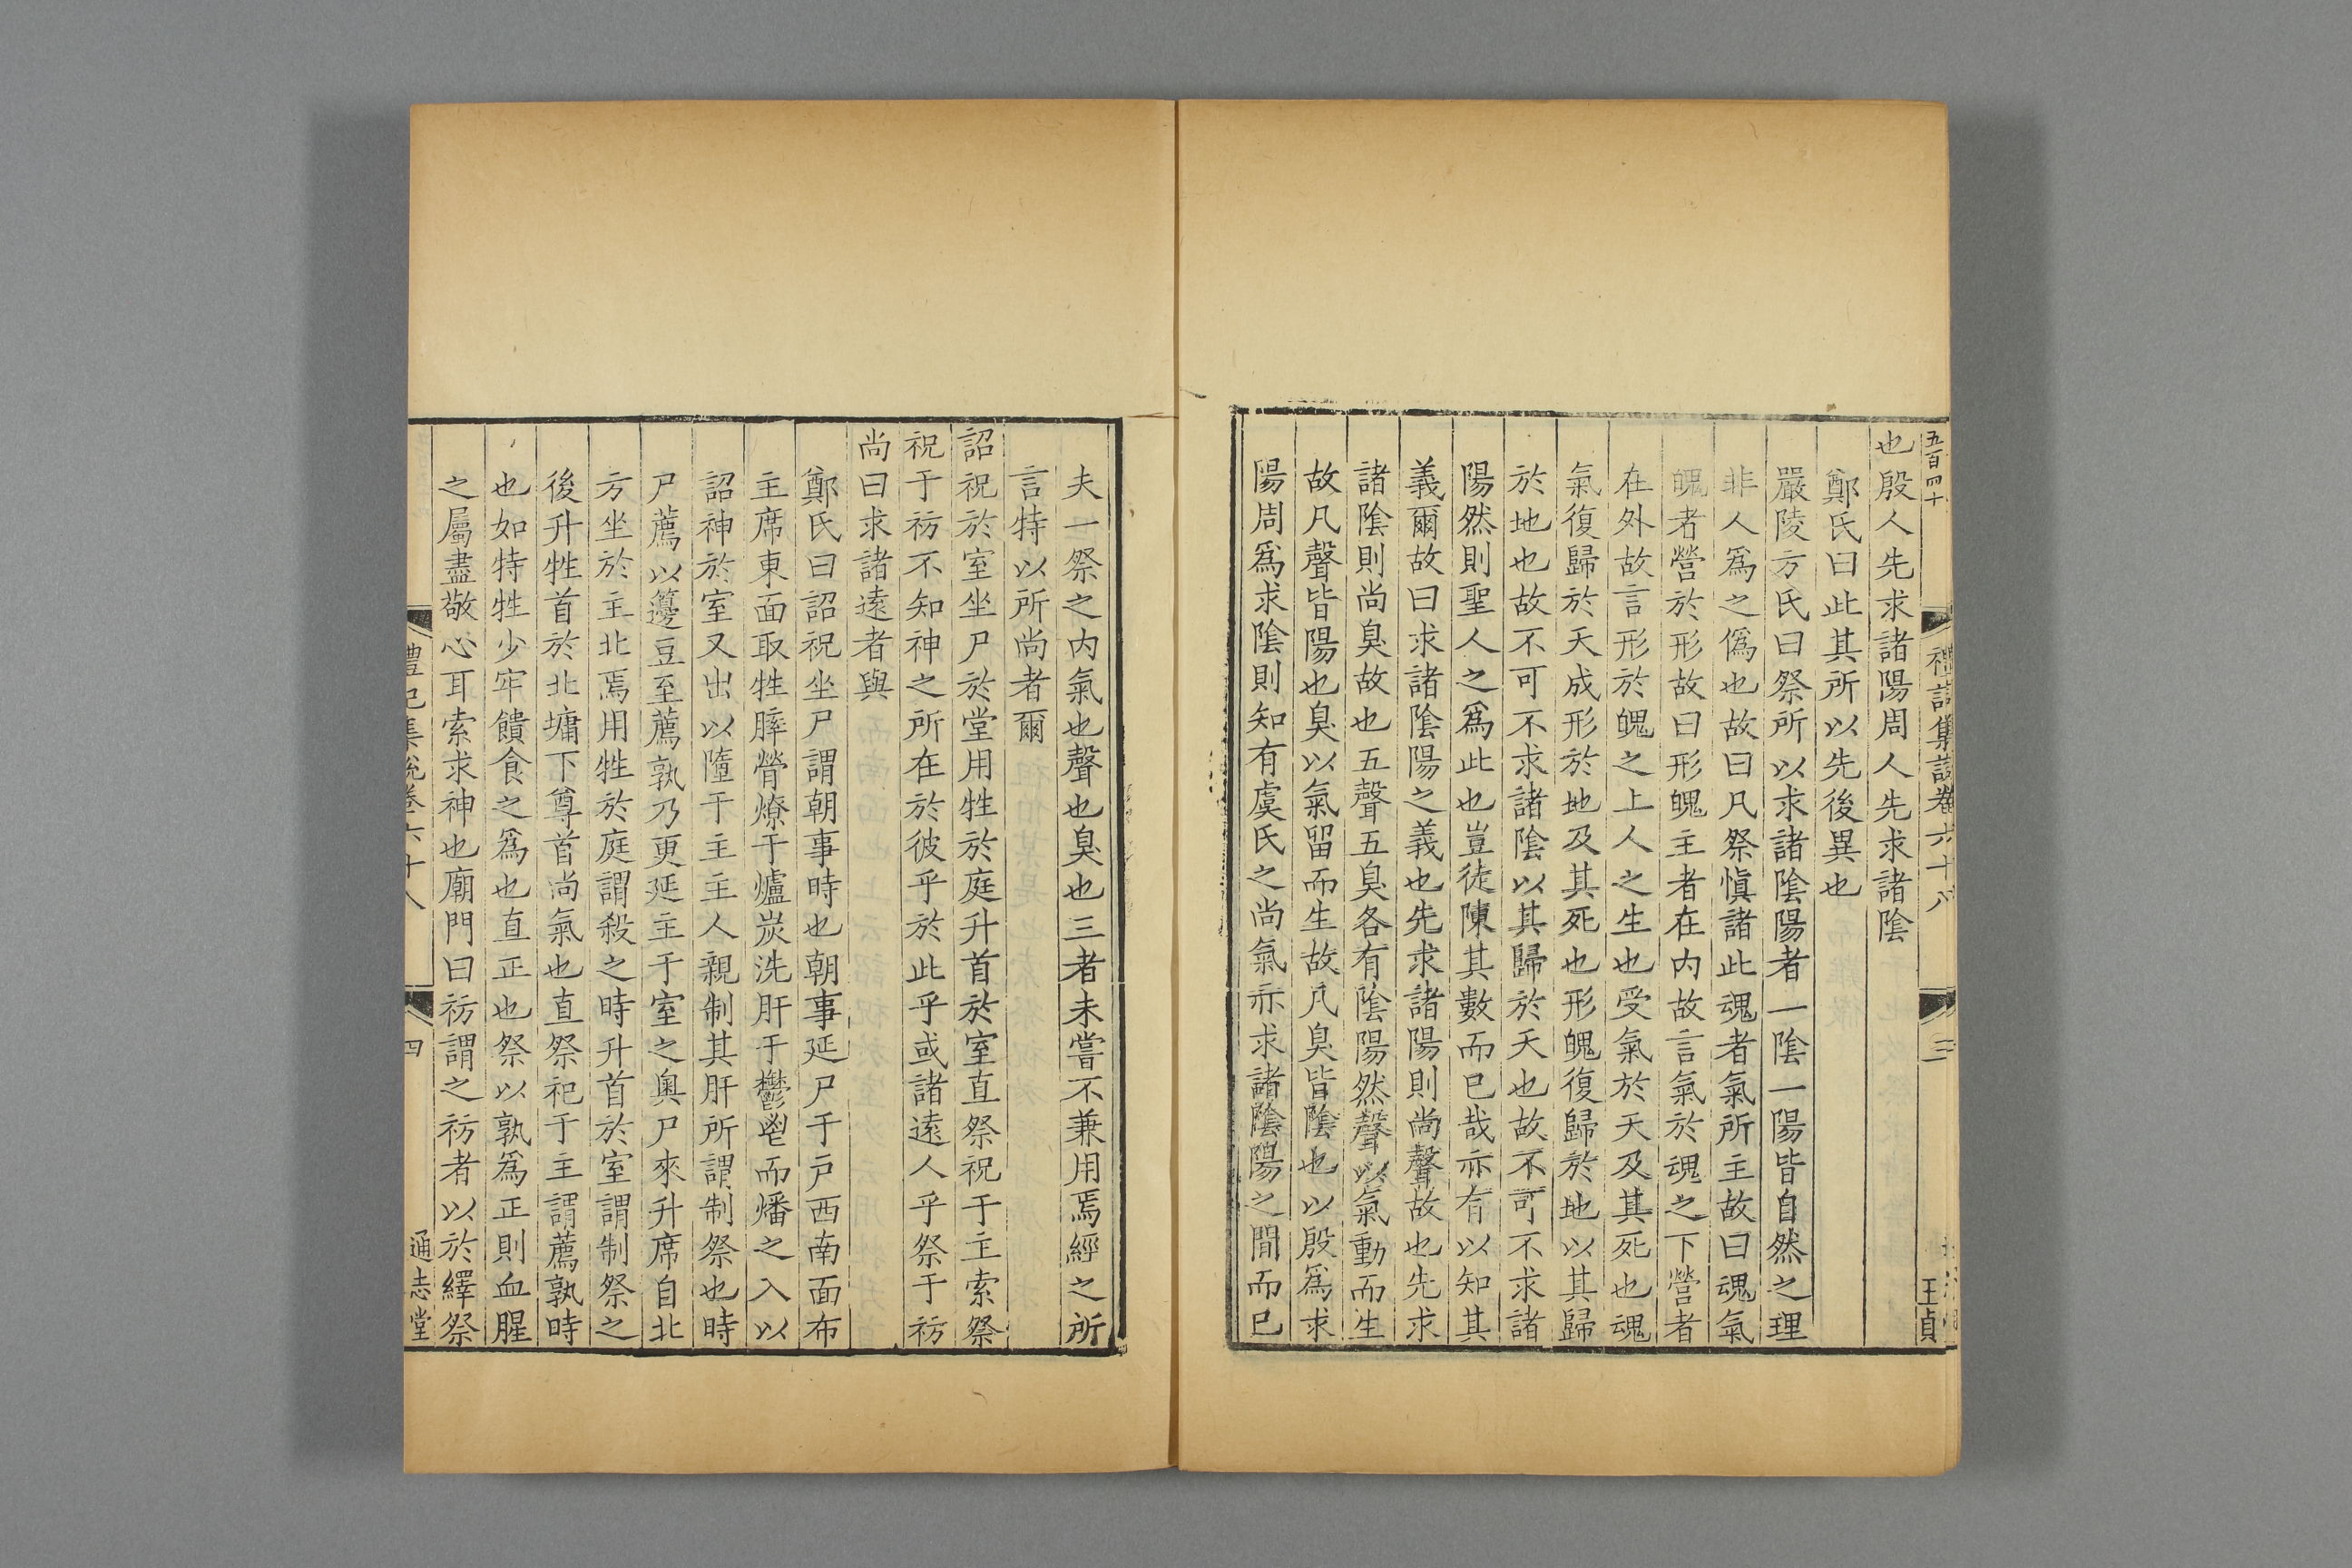 五百四十
禮記集說卷六十八
三
王貞
也殷人先求諸陽周人先求諸陰
鄭氏曰此其所以先後異也
嚴陵方氏曰祭所以求諸陰陽者一陰一陽皆自然之理
非人爲之僞也故曰凡祭愼諸此魂者氣所主故曰魂氣
魄者營於形故曰形魄主者在內故言氣於魂之下營者
在外故言形於魄之上人之生也受氣於天及其死也魂
氣復歸於天成形於地及其死也形魄復歸於地以其歸
於地也故不可不求諸陰以其歸於天也故不可不求諸
陽然則聖人之爲此也豈徒陳其數而已哉亦有以知其
義爾故曰求諸陰陽之義也先求諸陽則尚聲故也先求
諸陰則尚臭故也五聲五臭各有陰陽然聲以氣動而生
故凡聲皆陽也臭以氣留而生故凡臭皆陰也以殷爲求
陽周爲求陰則知有虞氏之尚氣亦求諸陰陽之間而已
夫一祭之內氣也聲也臭也三者未嘗不兼用焉經之所
言特以所尚者爾
詔祝於室坐尸於堂用牲於庭升首於室直祭祝于主索祭
祝于祊不知神之所在於彼乎於此乎或諸遠人乎祭于祊
尚曰求諸遠者與
鄭氏曰詔祝坐尸謂朝事時也朝事延尸于戶西南面布
主席東面取牲膟膋燎于爐炭洗肝于鬱鬯而燔之入以
詔神於室又出以隋于主主人親制其肝所謂制祭也時
尸薦以籩豆至薦孰乃更延主于室之奧尸來升席自北
方坐於主北焉用牲於庭謂殺之時升首於室謂制祭之
後升牲首於北墉下尊首尚氣也直祭祀于主謂薦孰時
也如特牲少牢饋食之爲也直正也祭以孰爲正則血腥
之屬盡敬心耳索求神也廟門曰祊謂之祊者以於繹祭
禮記集說卷六十八
四
通志堂